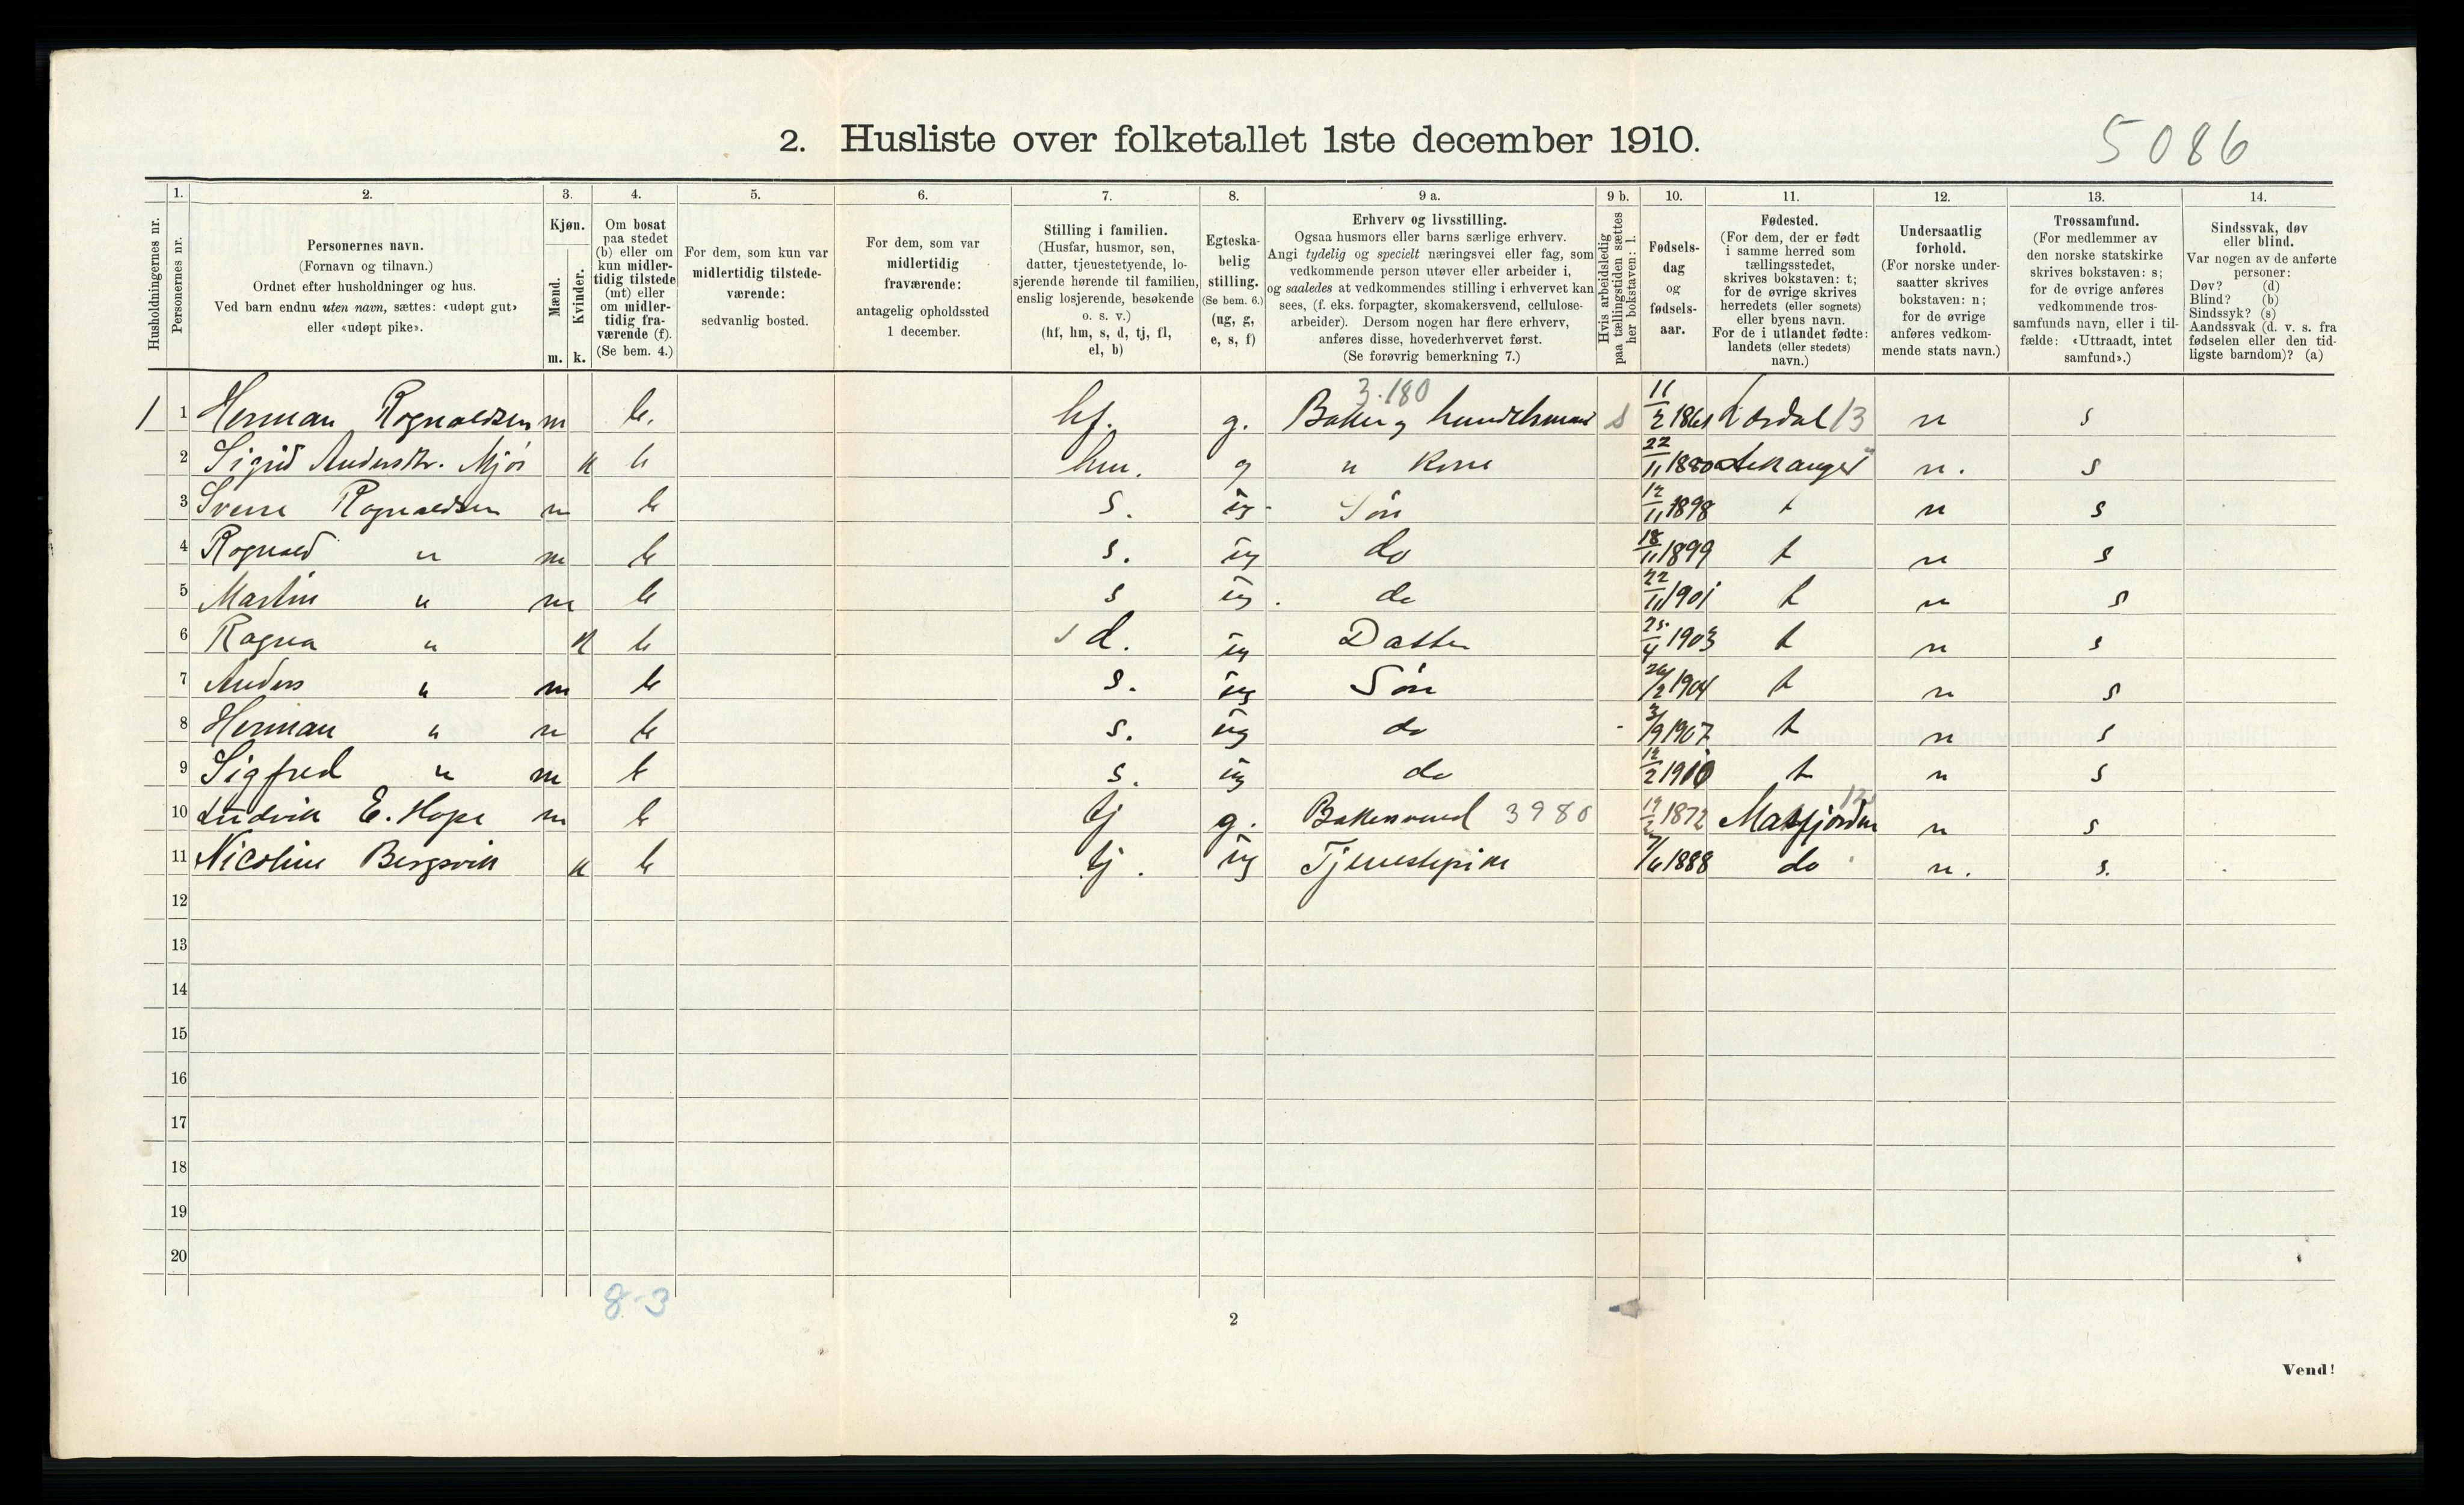 2. Husliste over folketallet 1ste december 1910.
5086
1. 2. 3. 4. 5. 6. 7. 8. 9 a. 9 b. 10. 11. 12. 13. 14.
Husholdningernes nr.
Personernes nr.
Personernes navn.
(Fornavn og tilnavn.)
Ordnet efter husholdninger og hus.
Ved barn endnu uten navn, sættes: «udøpt gut»
eller «udøpt pike».
Kjøn.
Mænd.
Kvinder.
m. k.
Om bosat
paa stedet
(b) eller om
kun midler-
tidig tilstede
(mt) eller
om midler-
tidig fra-
værende (f).
(Se bem. 4.)
For dem, som kun var
midlertidig tilstede-
værende:
sedvanlig bosted.
For dem, som var
midlertidig
fraværende:
antagelig opholdssted
1 december.
Stilling i familien.
(Husfar, husmor, søn,
datter, tjenestetyende, lo-
sjerende hørende til familien,
enslig losjerende, besøkende
o. s. v.)
(hf, hm, s, d, tj, fl,
el, b)
Egteska-
belig
stilling.
(Se bem. 6.)
(ug, g,
e, s, f)
Erhverv og livsstilling.
Ogsaa husmors eller barns særlige erhverv.
Angi tydelig og specielt næringsvei eller fag, som
vedkommende person utøver eller arbeider i,
og saaledes at vedkommendes stilling i erhvervet kan
sees, (f. eks. forpagter, skomakersvend, cellulose-
arbeider). Dersom nogen har flere erhverv,
anføres disse, hovederhvervet først.
(Se forøvrig bemerkning 7.)
Hvis arbeidsledig
paa tællingstiden sættes
her bokstaven: l.
Fødsels-
dag
og
fødsels-
aar.
Fødested.
(For dem, der er født
i samme herred som
tællingsstedet,
skrives bokstaven: t;
for de øvrige skrives
herredets (eller sognets)
eller byens navn.
For de i utlandet fødte:
landets (eller stedets)
navn.)
Undersaatlig
forhold.
(For norske under-
saatter skrives
bokstaven: n;
for de øvrige
anføres vedkom-
mende stats navn.)
Trossamfund.
(For medlemmer av
den norske statskirke
skrives bokstaven: s;
for de øvrige anføres
vedkommende tros-
samfunds navn, eller i til-
fælde: «Uttraadt, intet
samfund».)
Sindssvak, døv
eller blind.
Var nogen av de anførte
personer:
Døv? (d)
Blind? (b)
Sindssyk? (s)
Aandssvak (d. v. s. fra
fødselen eller den tid-
ligste barndom)? (a)
3.180
1 1 Herman Rognaldsen m b. hf. g. Baker og handelsmand s 11/2 Lærdal 13 n s
2 Sigrid Andersdtr. Mjøs k b hm. g " Kone 22/11 1880 n. s
3 Sverre Rognaldsen m b s. ug Søn 12/11 1898 t n s
4 Rognald " m b s. ug do 18/11 1899 t n s
5 Martin " m b s ug. do 22/11 1901 t n s
6 Ragna " k b d. ug Datter 25/4 1903 t n s
7 Anders " m b s. ug Søn 26/2 1904 t n s
8 Herman " m b s. ug do 3/9 1907 t n s
9 Sigfred " m b s. ug do 12/2 1910 t n s
10 Ludvik E. Hope m b tj g. Bakersvend 3980 19/2 1872 Masfjorden n s
11 Nicoline Bergsvik k b tj. ug Tjenestepike 7/6 1888 do n. s.
12
13
14
15
16
17
18
19
20
8-3
2
Vend!